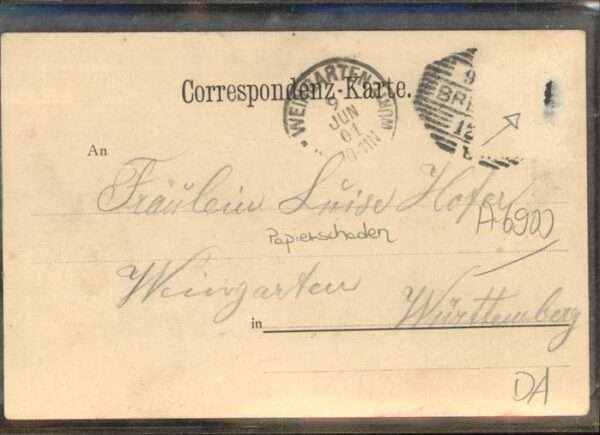 Correspondenz-Karte.
WEINGARTEN WÜRT
9
JUN
01
10-11N
9
BRE
12
An
Fräulein Luise Hofer
A6900
Papierschaden
Weingarten
in
Württemberg
DA